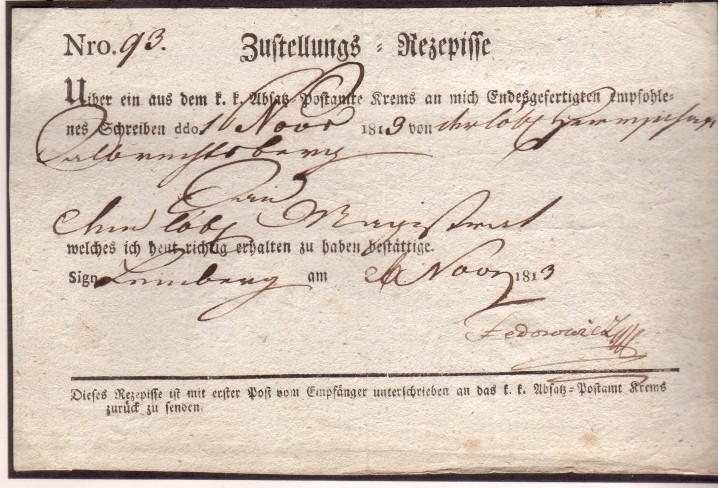 Nro. 93. Zustellungs = Rezepisse
Uiber ein aus dem k. k. Absatz=Postamte Krems an mich Endesgefertigten empfohle-
nes Schreiben ddo 16 Novr 1813 von der löbl Herrschaft
Albrechtsberg
löbl Magistrat
welches ich heut richtig erhalten zu haben bestättige.
Sign. Lemberg am 26 Novr 1813
Fedorowicz
Dieses Rezepisse ist mit erster Post vom Empfänger unterschrieben an das k. k. Absatz=Postamt Krems
zurück zu senden.